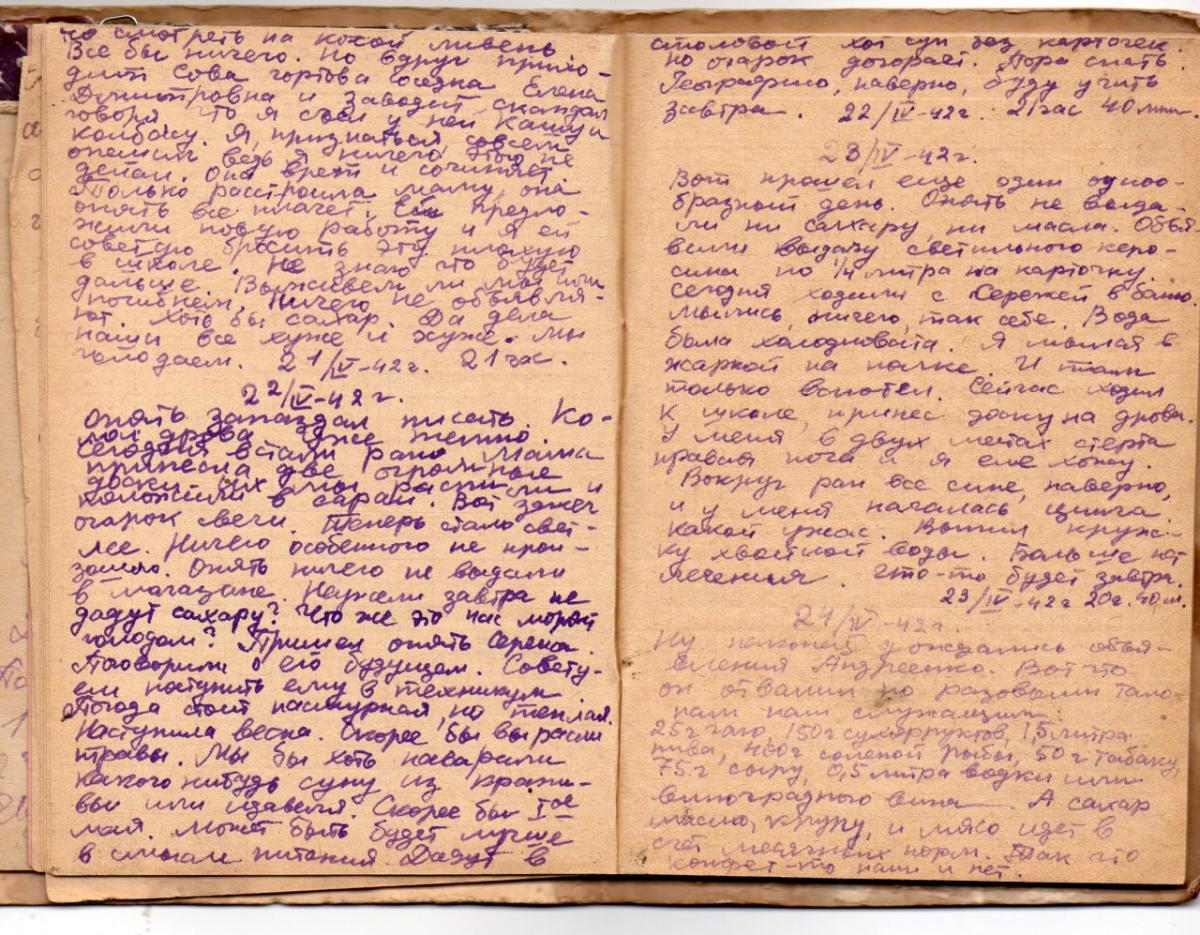 но смотреть на какой ливень.
Все бы ничего. Но вдруг прихо-
дит Сова чортова соседка Елена
Дмитровна и заводит скандал
говоря что я съел у ней кашу и
колбасу. Я, признаться, совсем
опешил ведь я ничего этого не
делал. Она врет и сочиняет.
Только расстроила маму, она
опять все плачет. Ей предло-
жили новую работу и я ей
советую бросить эту плохую
в школе. Не знаю что будет
дальше. Выживем ли мы или
погибнем, Ничего не объявля-
ют. Хоть бы сахар. Да дела
наши все хуже и хуже. Мы
голодаем. 21/IV-42г. 21 час.
22/IV-42г.
Опять запоздал писать. Ко-
лол дрова. Уже темно.
Сегодня встали рано. Мама
принесла две огромные
доски. Их мы распилили и
положили в сарай. Вот зажег
огарок свечи. Теперь стало свет-
лее. Ничего особенного не прои-
зошло. Опять ничего не выдали
в магазине. Неужели завтра не
дадут сахару? Что же это нас морят
голодом? Пришел опять Сережа.
Поговорили о его будущем. Совету-
ем поступить ему в техникум
Погода стоит пасмурная, но теплая.
Наступила весна. Скорее бы выросли
травы. Мы бы хоть наварили
какого нибудь супу из крапи-
вы или щавеля. Скорее бы I ое
мая. Может быть будет лучше
в смысле питания. Дадут в
столовой хоть суп без карточек.
Но огарок догорает. Пора спать.
Географию, наверно, буду учить
завтра. 22/IV-42г. 21 час 40 мин.
23/IV-42г.
Вот прошел еще один одноо-
бразный день. Опять не выда-
ли ни сахару, ни масла. Объя-
вили выдачу светильного керо-
сина по 1/4 литра на карточку.
Сегодня ходили с Сережей в баню
мылись, ничего, так себе. Вода
была холодновата. Я мылся в
жаркой на полке. И там
только вспотел. Сейчас ходил
к школе, принес доску на дрова.
У меня в двух местах стерта
правая нога и я еле хожу.
Вокруг ран все сине, наверно,
и у меня началась цинга.
Какой ужас. Выпил круж-
ку хвойной воды. Больше нет
лечения. Что-то будет завтра.
23/IV-42г 20г. 40м.
24/IV-42г.
Ну, наконец, дождались объя-
вления Андреенко. Вот что
он отвалил по разовым тало-
нам нам служащим
25г чаю, 150г сухофруктов, 1,5 литра
пива, 400г соленой рыбы, 50г табаку,
75г сыру, 0,5 литра водки или
виноградного вина. А сахар
масло, крупу, и мясо идет в
счет месячных норм. Так что
конфет-то нам и нет.